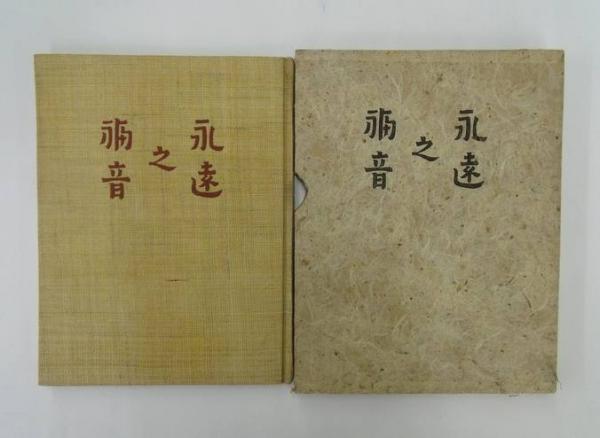 永遠
之
福音
永遠
之
福音